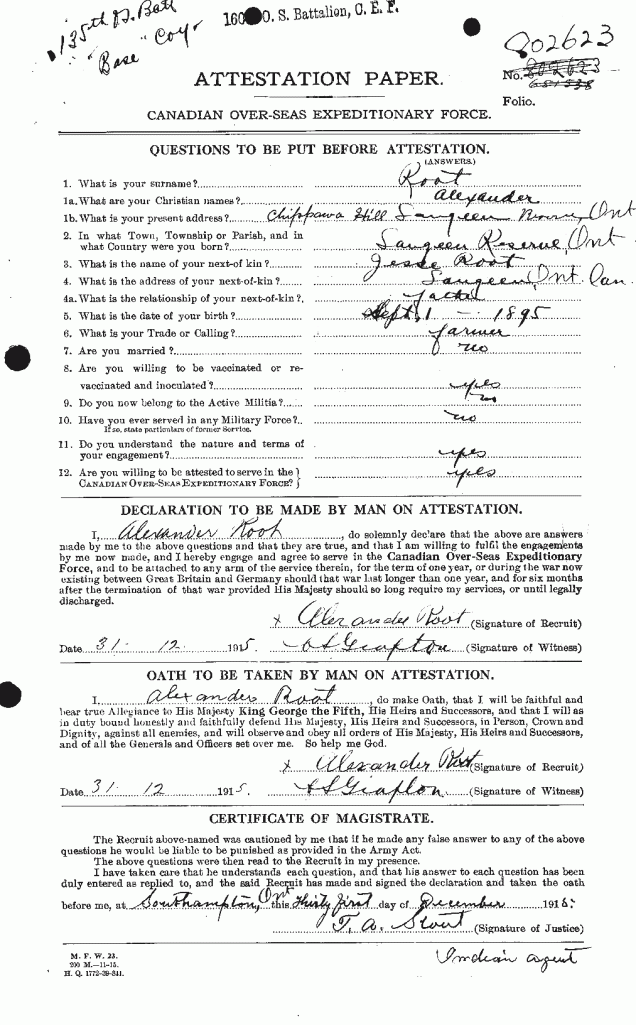 135th O. Batt
"Base" Coy
160 O. S. Battalion, C. E. F.
802623
ATTESTATION PAPER.
No. 802623
Folio.
CANADIAN OVER-SEAS EXPEDITIONARY FORCE.
QUESTIONS TO BE PUT BEFORE ATTESTATION.
(ANSWERS.)
1. What is your surname? Root
1a. What are your Christian names? Alexander
1b. What is your present address? Chippawa Hill Saugeen Ont
2. In what Town, Township or Parish, and in
what Country were you born? Saugeen Reserve, Ont
3. What is the name of your next-of kin? Jesse Root
4. What is the address of your next-of-kin? Saugeen, Ont. Can.
4a. What is the relationship of your next-of-kin? father
5. What is the date of your birth? Sept, 1 - 1895
6. What is your Trade or Calling? farmer
7. Are you married? no
8. Are you willing to be vaccinated or re-
vaccinated and inoculated? yes
9. Do you now belong to the Active Militia? no
10. Have you ever served in any Military Force? no
If so, state particulars of former Service.
11. Do you understand the nature and terms of
your engagement? yes
12. Are you willing to be attested to serve in the
CANADIAN OVER-SEAS EXPEDITIONARY FORCE? yes
DECLARATION TO BE MADE BY MAN ON ATTESTATION.
I, Alexander Root, do solemnly declare that the above are answers
made by me to the above questions and that they are true, and that I am willing to fulfil the engagements
by me now made, and I hereby engage and agree to serve in the Canadian Over-Seas Expeditionary
Force, and to be attached to any arm of the service therein, for the term of one year, or during the war now
existing between Great Britain and Germany should that war last longer than one year, and for six months
after the termination of that war provided His Majesty should so long require my services, or until legally
discharged.
x Alexander Root (Signature of Recruit)
Date 31. 12 1915 (Signature of Witness)
OATH TO BE TAKEN BY MAN ON ATTESTATION.
I, Alexander Root, do make Oath, that I will be faithful and
bear true Allegiance to His Majesty King George the Fifth, His Heirs and Successors, and that I will as
in duty bound honestly and faithfully defend His Majesty, His Heirs and Successors, in Person, Crown and
Dignity, against all enemies, and will observe and obey all orders of His Majesty, His Heirs and Successors,
and of all the Generals and Officers set over me. So help me God.
x Alexander Root (Signature of Recruit)
Date 31. 12 1915. (Signature of Witness)
CERTIFICATE OF MAGISTRATE.
The Recruit above-named was cautioned by me that if he made any false answer to any of the above
questions he would be liable to be punished as provided in the Army Act.
The above questions were then read to the Recruit in my presence.
I have taken care that he understands each question, and that his answer to each question has been
duly entered as replied to, and the said Recruit has made and signed the declaration and taken the oath
before me, at Southampton, Ont this Thirty first day of December 1915.
T. A. Stout (Signature of Justice)
Indian agent
M. F. W. 23.
200 M.—11-15.
H. Q. 1772-39-841.